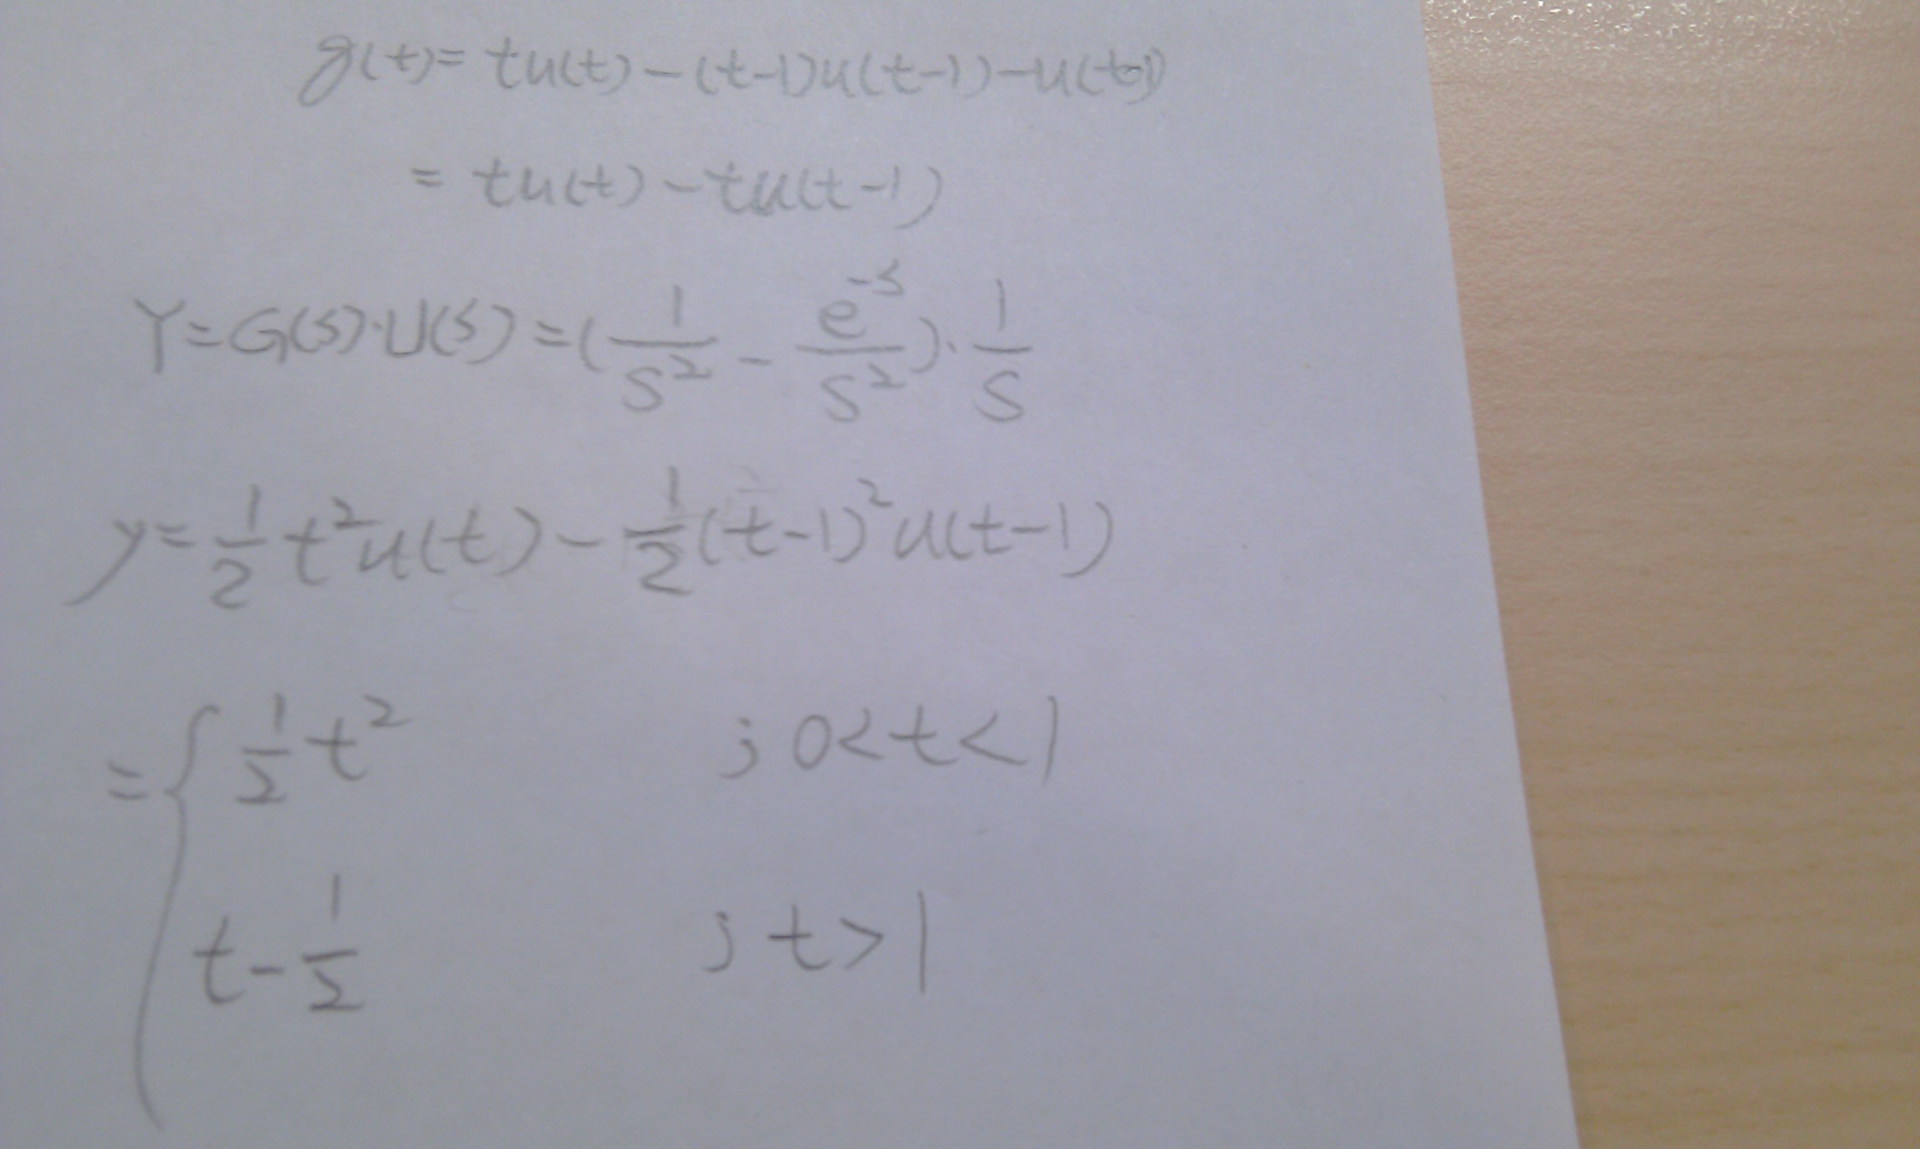 g(t) = tu(t) - (t-1)u(t-1) - u(t-1)
= tu(t) - tu(t-1)
Y = G(s)·U(s) = (1/s² - e^-s/s²)·1/s
y = 1/2 t² u(t) - 1/2 (t-1)² u(t-1)
= { 1/2 t² ; 0<t<1
t - 1/2 ; t>1